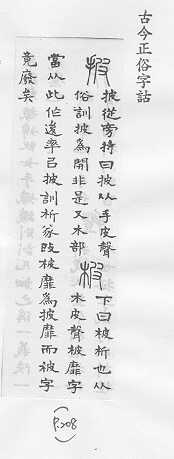 古今正俗字詁
披
披從旁持曰披从手皮聲
俗訓披為開非是又木部
柀
下曰柀析也从
木皮聲柀靡字
當从此作後率㠯披訓析遂改柀靡為披靡而柀字
竟廢矣
(P.208)